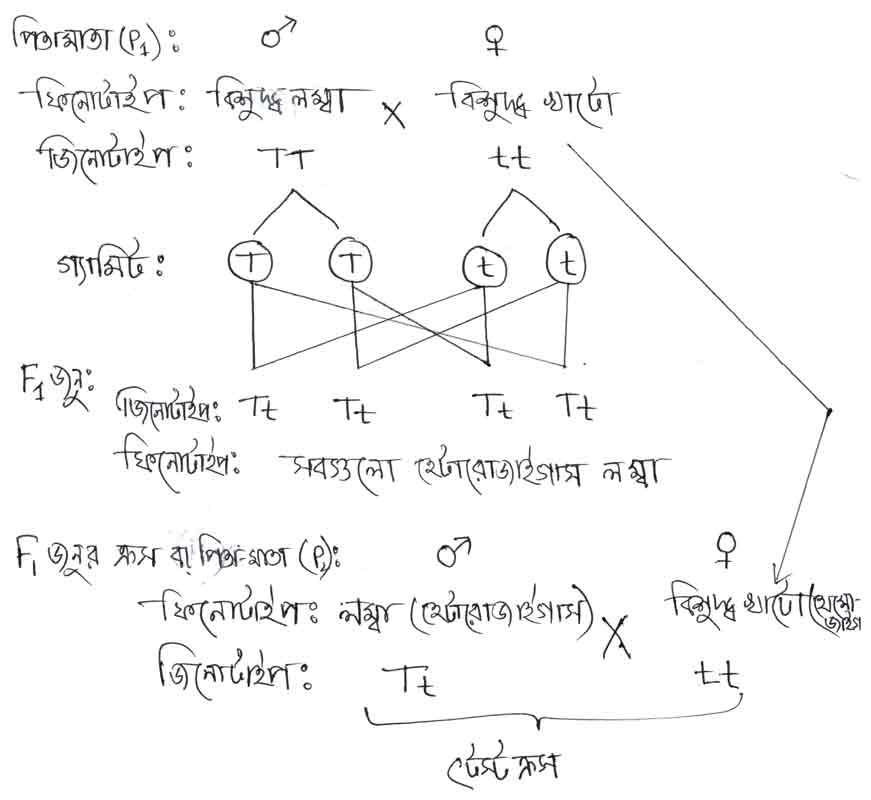 পিতামাতা (P1): ♂ ♀
ফিনোটাইপ: বিশুদ্ধ লম্বা X বিশুদ্ধ খাটো
জিনোটাইপ: TT tt
গ্যামিট: T T t t
F1 জনু:
জিনোটাইপ: Tt Tt Tt Tt
ফিনোটাইপ: সবগুলো হেটারোজাইগাস লম্বা
F1 জনুর ক্রস বা পিতা-মাতা (P2): ♂ ♀
ফিনোটাইপ: লম্বা (হেটারোজাইগাস) X বিশুদ্ধ খাটো (হোমো-
জাইগ
জিনোটাইপ: Tt tt
টেস্ট ক্রস